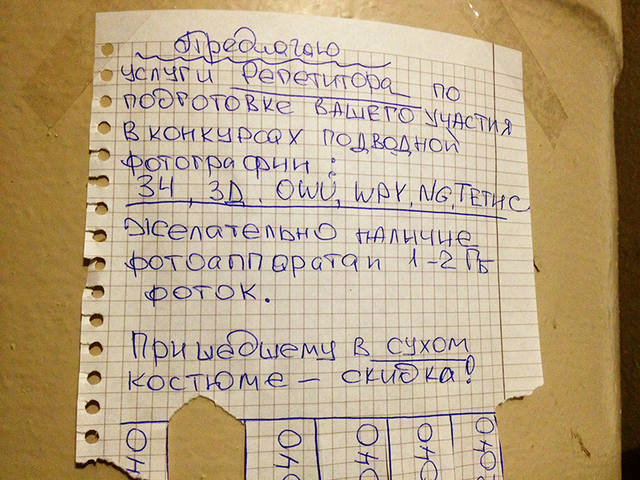 Предлагаю
услуги Репетитора по
подготовке вашего участия
в конкурсах подводной
фотографии:
ЗЧ, 3Д, OWU, WPY, NG, ТЕТИС
Желательно наличие
фотоаппарата и 1-2 Гб
фоток.
Пришедшему в сухом
костюме – скидка!